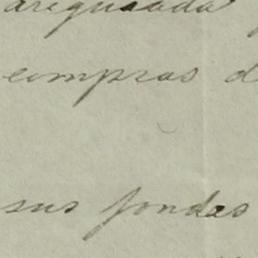 arequiada
compras d
sus fondas